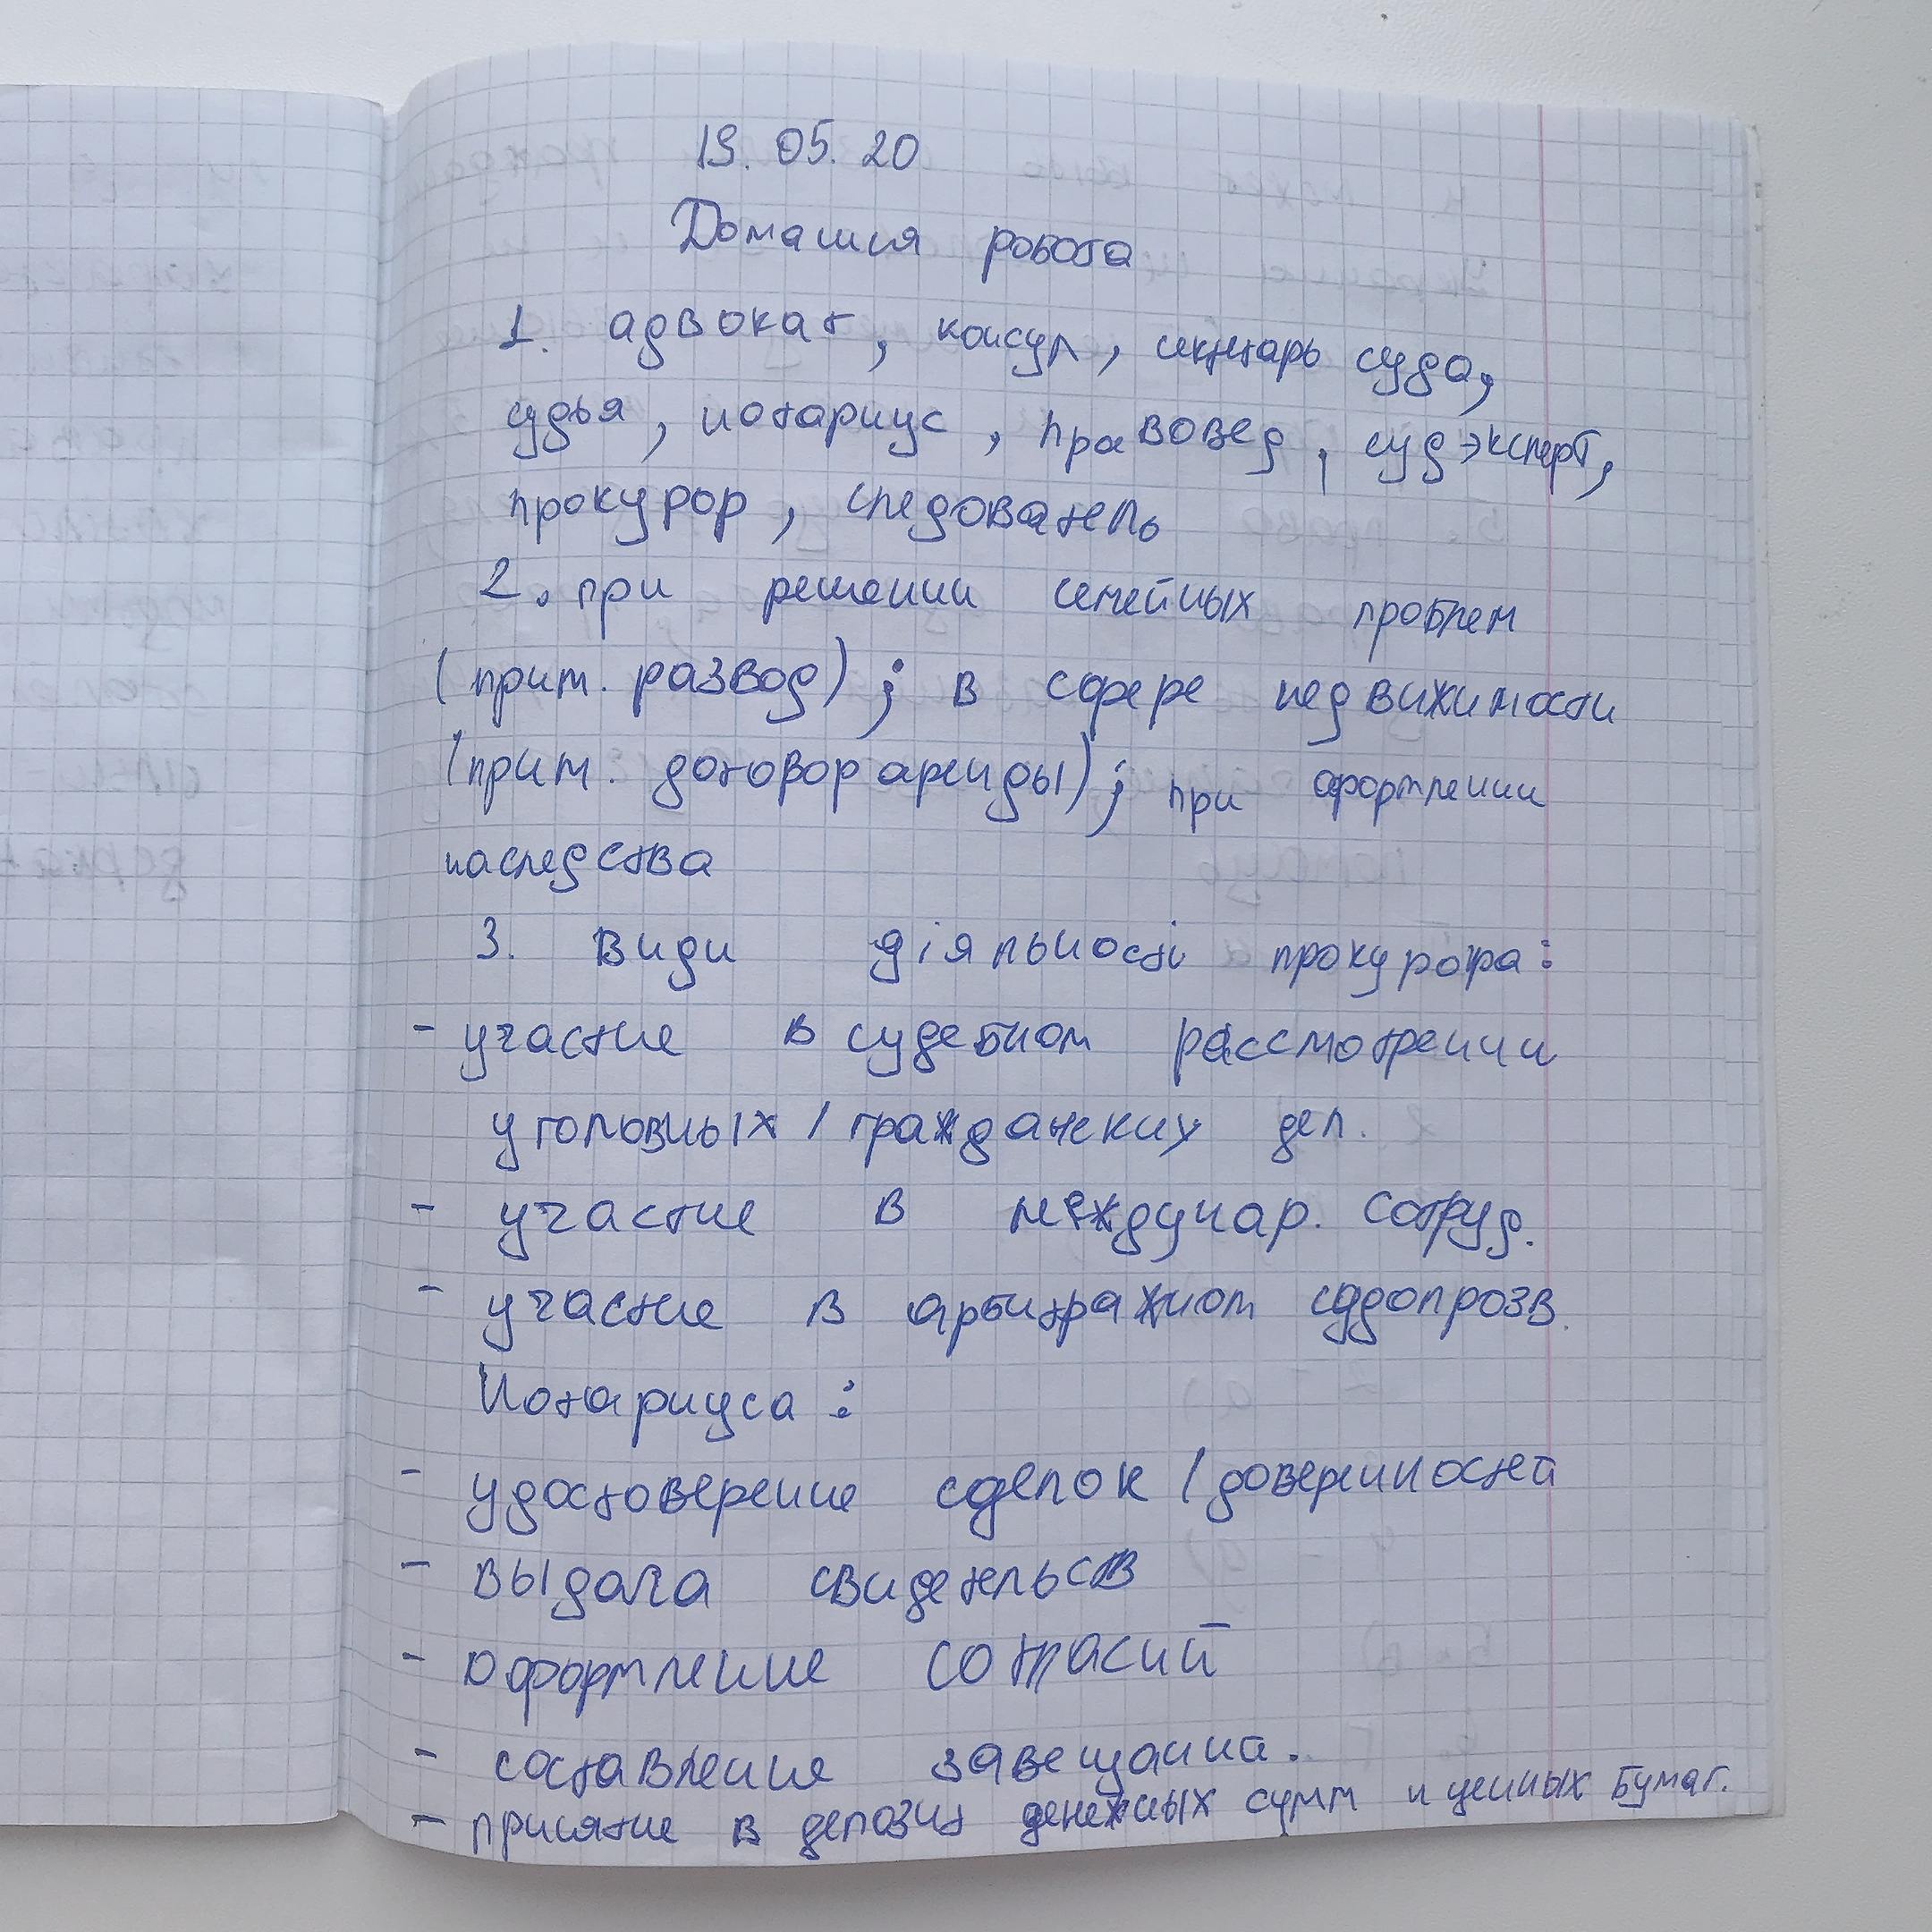 19.05.20
Домашня робота
1. адвокат, консул, секретарь суда,
судья, нотариус, правовед, судэксперт,
прокурор, следователь
2. при решении семейных проблем
(прим. развод); в сфере недвижимости
(прим. договор аренды); при оформлении
наследства
3. Види діяльності прокурора:
- участие в судебном рассмотрении
уголовных / гражданских дел.
- участие в междунар. сотруд.
- участие в арбитражном судопрозв.
Нотариуса:
- удостоверение сделок / доверенностей
- выдача свидетельств
- оформление согласий
- составление завещания.
- принятие в депозит денежных сумм и ценных бумаг.